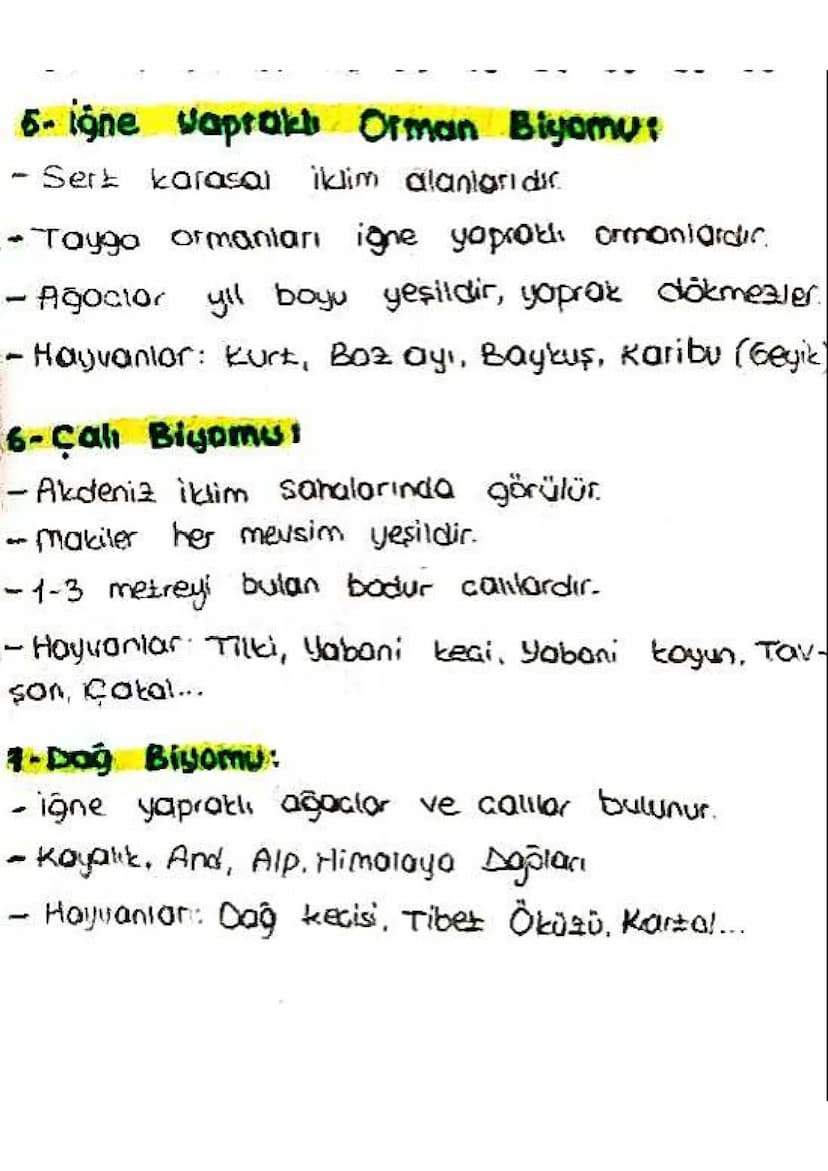 5- İğne Yapraklı Orman Biyomu:
- Sert karasal iklim alanlarıdır.
- Tayga ormanları iğne yapraklı ormanlardır.
- Ağaçlar yıl boyu yeşildir, yaprak dökmezler.
- Hayvanlar: Kurt, Boz ayı, Baykuş, Karibu (Geyik)
6- Çalı Biyomu:
- Akdeniz iklim sahalarında görülür.
- Makiler her mevsim yeşildir.
- 1-3 metreyi bulan bodur çalılardır.
- Hayvanlar: Tilki, Yabani keçi, Yabani koyun, Tav-
şan, Çakal...
7- Dağ Biyomu:
- iğne yapraklı ağaçlar ve çalılar bulunur.
- Kayalık, And, Alp, Himalaya Dağları
- Hayvanlar: Dağ keçisi, Tibet Öküzü, Kartal...